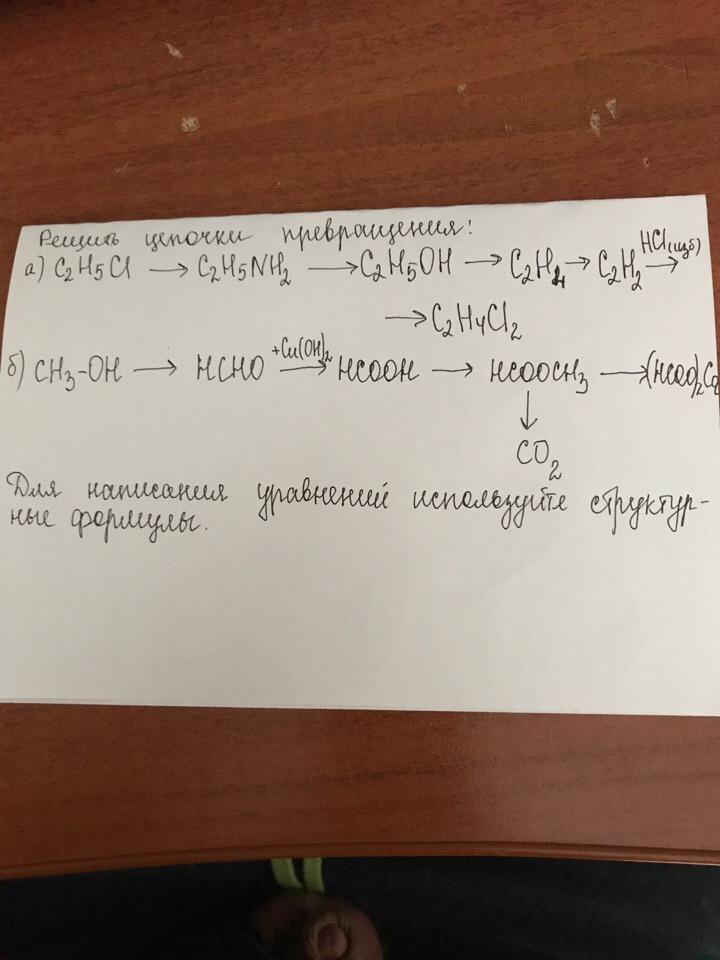 Решить цепочки превращения:
а) C₂H₅Cl → C₂H₅NH₂ → C₂H₅OH → C₂H₄ → C₂H₂ HCl(изб) →
→ C₂H₄Cl₂
б) CH₃-OH → HCHO +Cu(OH)₂ → HCOOH → HCOOCH₃ → (HCOO)₂Ca
↓
CO₂
Для написания уравнений используйте структур-
ные формулы.